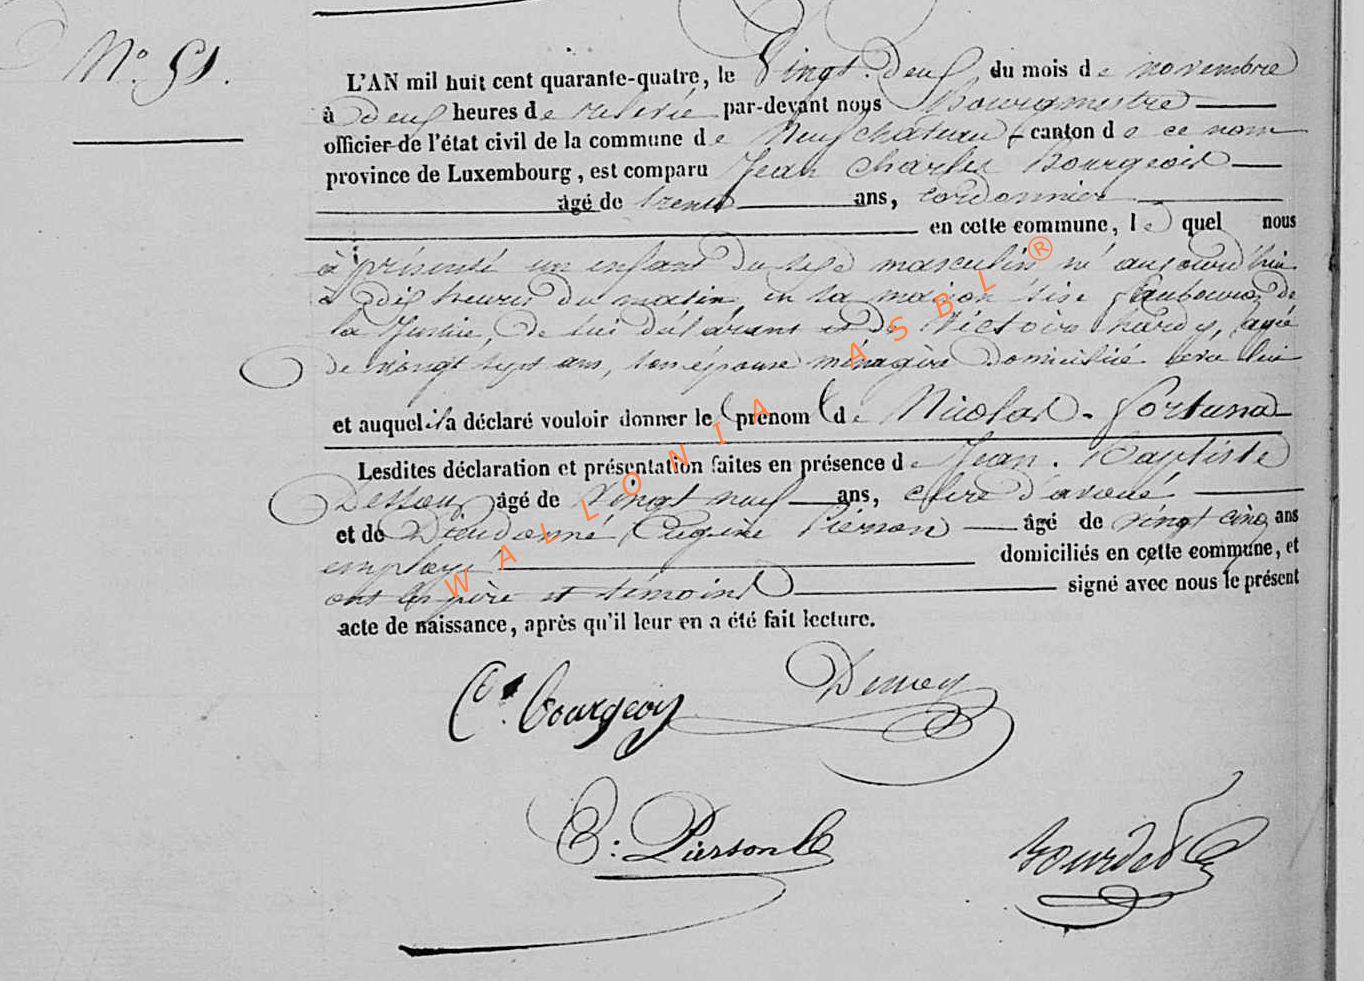 N° 51.
L'AN mil huit cent quarante-quatre, le Vingt-Deux du mois de novembre
à deux heures de relevée par-devant nous Bourgmestre
officier de l'état civil de la commune de Neufchateau, canton de ce nom
province de Luxembourg, est comparu Jean Charles Bourgeois
âgé de trente ans, cordonnier
en cette commune, lequel nous
à présenté un enfant du sexe masculin né aujourd'hui
à dix heures du matin, en sa maison sise faubourg de
la Justice, de lui déclarant et de Victoire hardy, agée
de vingt sept ans, son épouse ménagère domiciliée avec lui
et auquel il a déclaré vouloir donner le prénom de Nicolas-Fortuna
Lesdites déclaration et présentation faites en présence de Jean-Baptiste
âgé de Vingt neuf ans, clerc d'avoué
et de Dieudonné Eugène Pierson âgé de vingt cinq ans
employé domiciliés en cette commune, et
ont les père et témoins signé avec nous le présent
acte de naissance, après qu'il leur en a été fait lecture.
Cs. Bourgeois
E: Pierson
WALLONIA ASBL ®